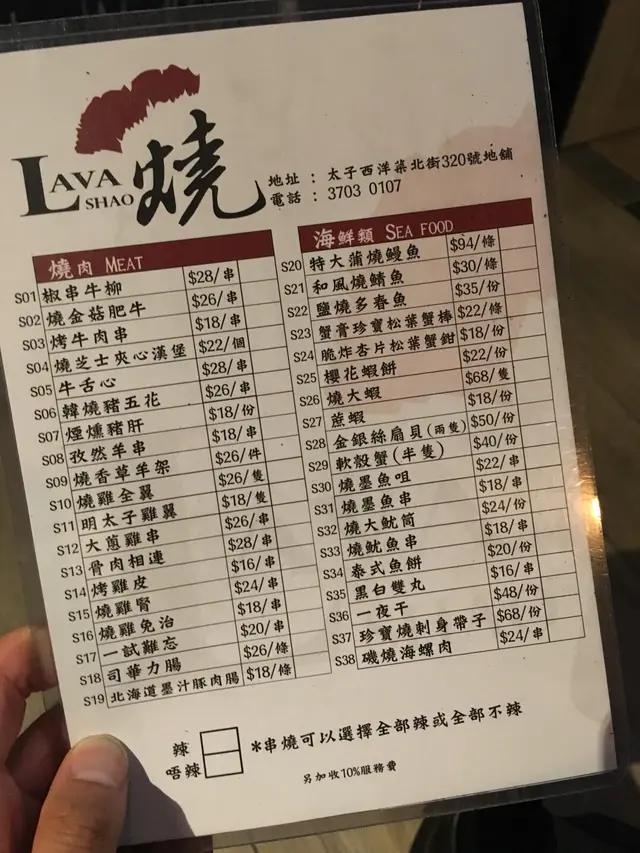 LAVA SHAO 燒
地址 : 太子西洋菜北街320號地舖
電話 : 3703 0107
燒肉 MEAT
S01 椒串牛柳 $28/串
S02 燒金菇肥牛 $26/串
S03 烤牛肉串 $18/串
S04 燒芝士夾心漢堡 $22/個
S05 牛舌心 $28/串
S06 韓燒豬五花 $26/串
S07 煙燻豬肝 $18/份
S08 孜然羊串 $18/串
S09 燒香草羊架 $26/件
S10 燒雞全翼 $26/隻
S11 明太子雞翼 $18/隻
S12 大蔥雞串 $26/串
S13 骨肉相連 $28/串
S14 烤雞皮 $16/串
S15 燒雞腎 $24/串
S16 燒雞免治 $18/串
S17 一試難忘 $20/串
S18 司華力腸 $26/條
S19 北海道墨汁豚肉腸 $18/條
海鮮類 SEA FOOD
S20 特大蒲燒鰻魚 $94/條
S21 和風燒鯖魚 $30/條
S22 鹽燒多春魚 $35/份
S23 蟹膏珍寶松葉蟹棒 $22/條
S24 脆炸杏片松葉蟹鉗 $18/份
S25 櫻花蝦餅 $22/份
S26 燒大蝦 $68/隻
S27 蔗蝦 $18/份
S28 金銀絲扇貝(兩隻) $50/份
S29 軟殼蟹(半隻) $40/份
S30 燒墨魚咀 $22/串
S31 燒墨魚串 $18/串
S32 燒大魷筒 $24/份
S33 燒魷魚串 $18/串
S34 泰式魚餅 $20/份
S35 黑白雙丸 $16/串
S36 一夜干 $48/份
S37 珍寶燒刺身帶子 $68/份
S38 磯燒海螺肉 $24/串
辣
唔辣
*串燒可以選擇全部辣或全部不辣
另加收10%服務費